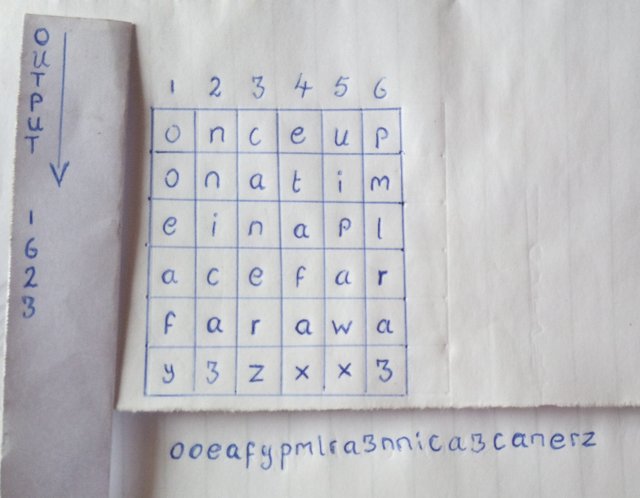 OUTPUT
1
6
2
3
1 2 3 4 5 6
o n c e u p
o n a t i m
e i n a p l
a c e f a r
f a r a w a
y 3 z x x 3
ooeafypmlra3nnica3canerz